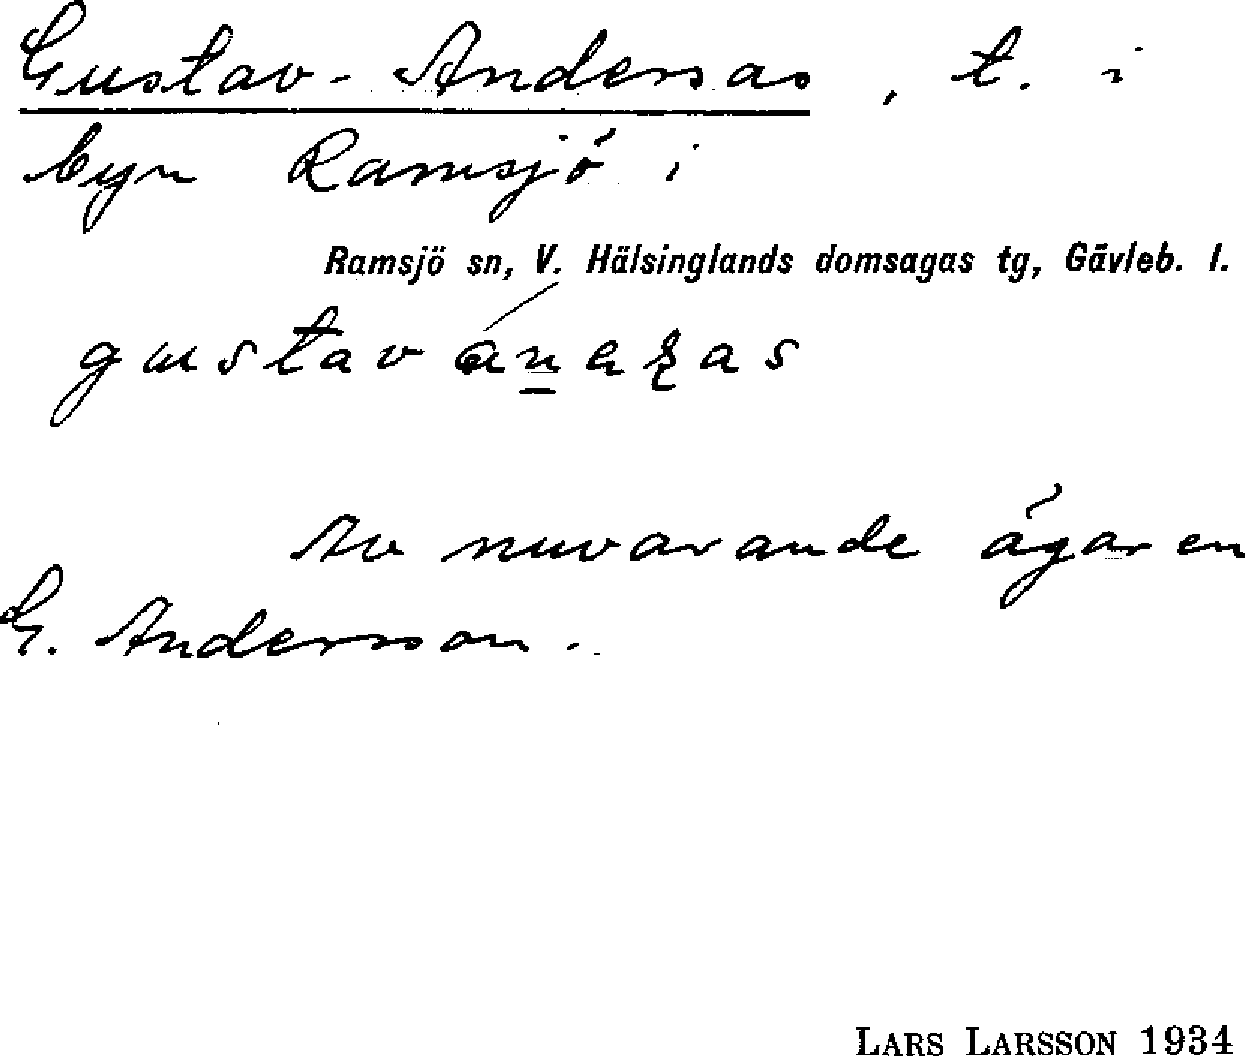 Gustav-Andersas, t. i
byn Ramsjö i
Ramsjö sn, V. Hälsinglands domsagas tg, Gävleb. l.
gustav
Av nuvarande ägaren
G. Andersson.
LARS LARSSON 1934